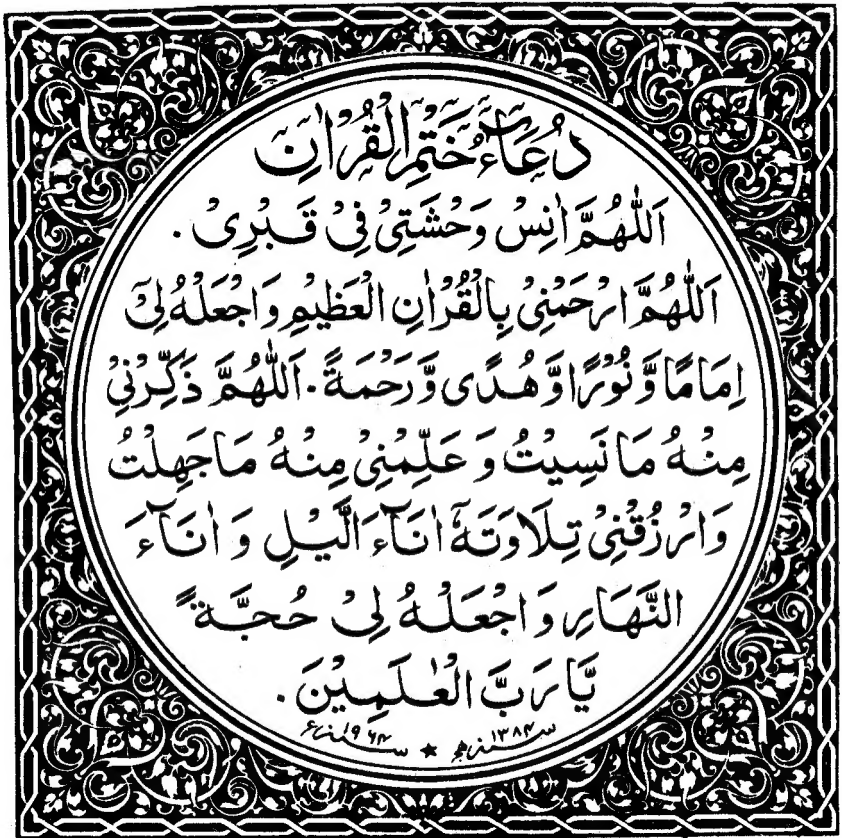 دُعَآءُ خَتْمِ الْقُرْاٰنِ
اَللّٰهُمَّ اٰنِسْ وَحْشَتِيْ فِيْ قَبْرِيْ.
اَللّٰهُمَّ ارْحَمْنِيْ بِالْقُرْاٰنِ الْعَظِيْمِ وَاجْعَلْهُ لِيْٓ
اِمَامًا وَّ نُوْرًا وَّ هُدًى وَّ رَحْمَةً. اَللّٰهُمَّ ذَكِّرْنِيْ
مِنْهُ مَا نَسِيْتُ وَ عَلِّمْنِيْ مِنْهُ مَا جَهِلْتُ
وَارْزُقْنِيْ تِلَاوَتَهٗٓ اٰنَآءَ الَّيْلِ وَ اٰنَآءَ
النَّهَارِ وَاجْعَلْهُ لِيْ حُجَّةً
يَّا رَبَّ الْعٰلَمِيْنَ.
سنه ۱۳۸۴ھ ★ سنه ۱۹۶۴ء